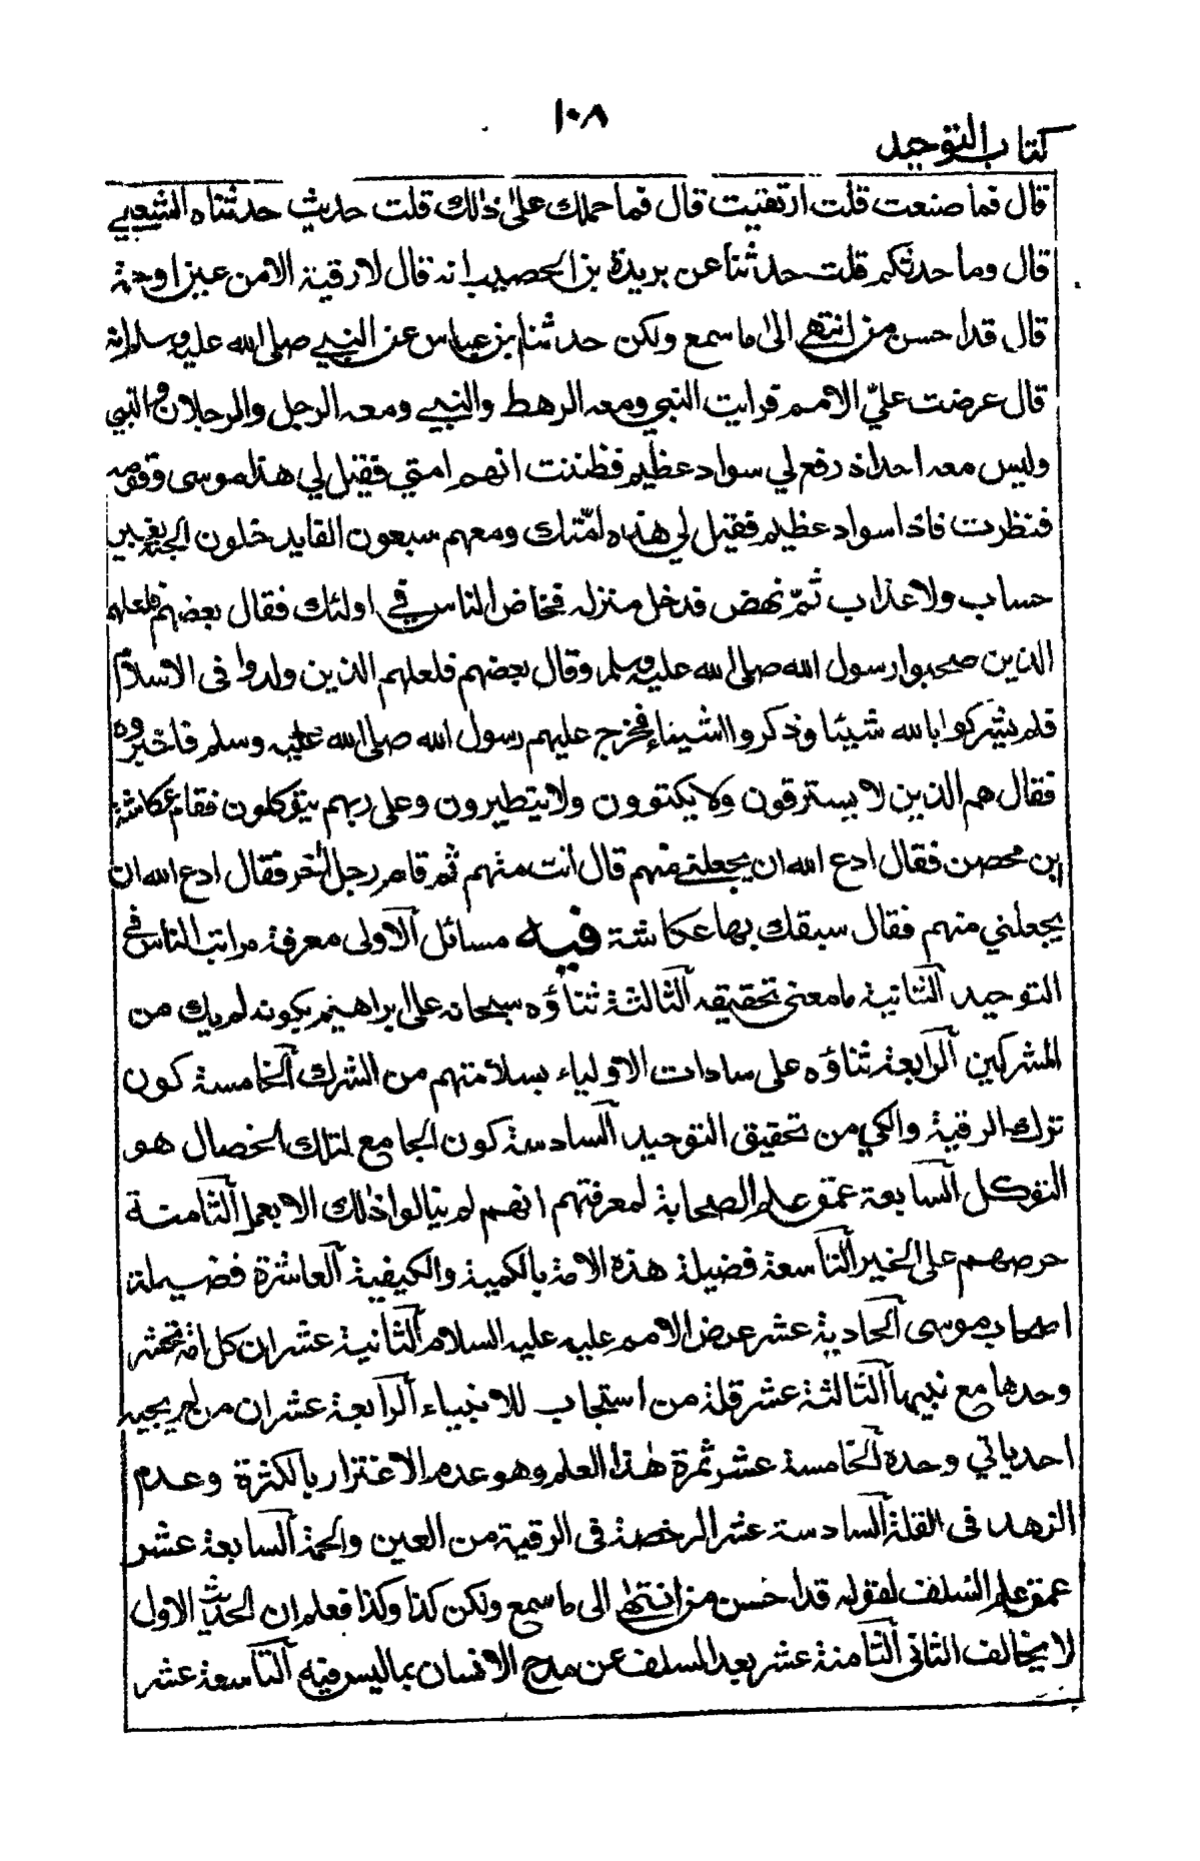 ١٠٨
كتاب التوحيد
قال فما صنعت قلت ارتقيت قال فما حملك على ذلك قلت حديث حدثناه الشعبي
قال وما حدثكم قلت حدثنا عن بريدة بن الحصيب انه قال لا رقية الا من عين او حمة
قال قد احسن من انتهى الى ما سمع ولكن حدثنا ابن عباس عن النبي صلى الله عليه وسلم انه
قال عرضت عليّ الامم فرايت النبي ومعه الرهط والنبي ومعه الرجل والرجلان والنبي
وليس معه احد اذ رفع لي سواد عظيم فظننت انهم امتي فقيل لي هذا موسى وقومه
فنظرت فاذا سواد عظيم فقيل لي هذه امتك ومعهم سبعون الفا يدخلون الجنة بغير
حساب ولا عذاب ثمّ نهض فدخل منزله فخاض الناس في اولئك فقال بعضهم فلعلهم
الذين صحبوا رسول الله صلى الله عليه وسلم وقال بعضهم فلعلهم الذين ولدوا في الاسلام
فلم يشركوا بالله شيئا وذكروا اشياء فخرج عليهم رسول الله صلى الله عليه وسلم فاخبروه
فقال هم الذين لا يسترقون ولا يكتوون ولا يتطيرون وعلى ربهم يتوكلون فقام عكاشة
ابن محصن فقال ادع الله ان يجعلني منهم قال انت منهم ثم قام رجل آخر فقال ادع الله ان
يجعلني منهم فقال سبقك بها عكاشة فيه مسائل الاولى معرفة مراتب الناس في
التوحيد الثانية ما معنى تحقيقه الثالثة ثناؤه سبحانه على ابراهيم بكونه لم يك من
المشركين الرابعة ثناؤه على سادات الاولياء بسلامتهم من الشرك الخامسة كون
ترك الرقية والكي من تحقيق التوحيد السادسة كون الجامع لتلك الخصال هو
التوكل السابعة عمق علم الصحابة لمعرفتهم انهم لم ينالوا ذلك الا بعمل الثامنة
حرصهم على الخير التاسعة فضيلة هذه الامة بالكمية والكيفية العاشرة فضيلة
اصحاب موسى الحادية عشر عرض الامم عليه عليه السلام الثانية عشر ان كل امة تحشر
وحدها مع نبيها الثالثة عشر قلة من استجاب للانبياء الرابعة عشر ان من لم يجبه
احد ياتي وحده الخامسة عشر ثمرة هذا العلم وهو عدم الاغترار بالكثرة وعدم
الزهد في القلة السادسة عشر الرخصة في الرقية من العين والحمة السابعة عشر
عمق علم السلف لقوله قد احسن من انتهى الى ما سمع ولكن كذا وكذا فعلم ان الحديث الاول
لا يخالف الثاني الثامنة عشر بعد السلف عن مدح الانسان بما ليس فيه التاسعة عشر